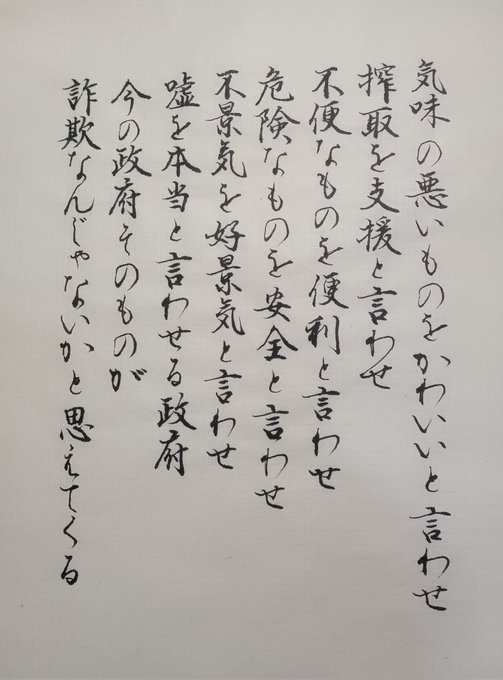 気味の悪いものをかわいいと言わせ
搾取を支援と言わせ
不便なものを便利と言わせ
危険なものを安全と言わせ
不景気を好景気と言わせ
嘘を本当と言わせる政府
今の政府そのものが
詐欺なんじゃないかと思えてくる